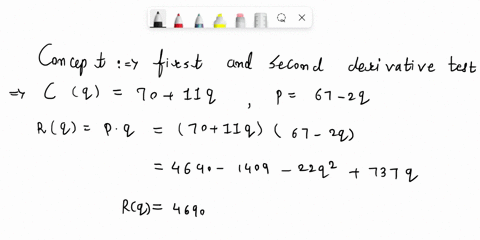 Concept :⇒ first and second derivative test
⇒ C(q) = 70 + 11q , p = 67 - 2q
R(q) = p·q = (70+11q) (67 - 2q)
= 4690 - 140q - 22q² + 737q
R(q) = 4690